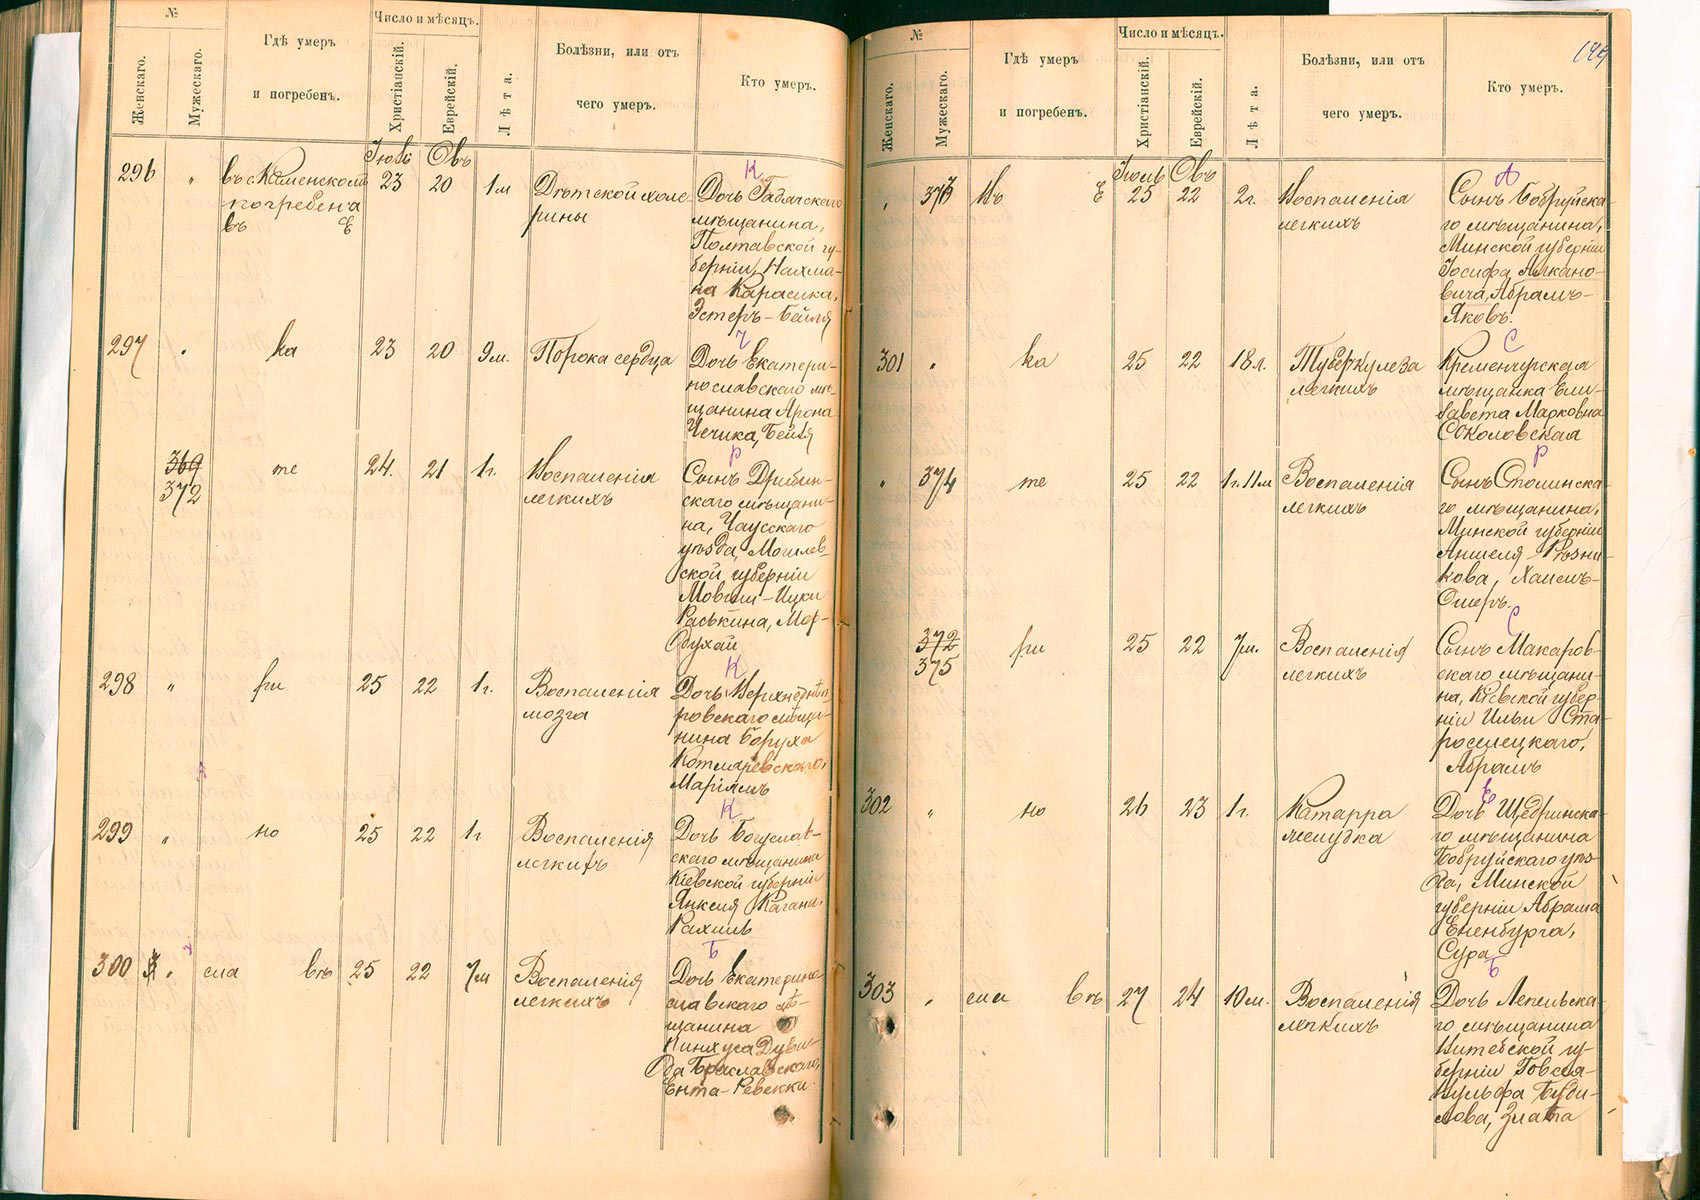 №
Женскаго.
Мужескаго.
Гдѣ умеръ
и погребенъ.
Число и мѣсяцъ.
Христіанскій.
Еврейскій.
Лѣта.
Болѣзни, или отъ
чего умеръ.
Кто умеръ.
Овъ
К
296 " въ с. Каменскомъ 23 20 1м Дѣтской холе-
погребена рины
въ Е
Дочь Гадячскаго
мѣщанина,
Полтавской гу-
берніи, Нахма-
на Карасика,
Эстеръ-Бейля
Ч
297 " ка 23 20 9м. Порока сердца
Дочь Екатери-
нославскаго мѣ-
щанина Арона
Чечика, Бейля
Р
369
372 те 24. 21 1г. Воспаленія
легкихъ
Сынъ Дрибин-
скаго мѣщани-
на, Чаусскаго
уѣзда, Могилев-
ской губерніи
Мовши-Ицки
Раськина, Мор-
духай
К
298 " ри 25 22 1г. Воспаленія
мозга
Дочь Верхнеднѣп
ровскаго мѣща-
нина Боруха
Котляревскаго,
Маріямъ
К
299 " но 25 22 1г Воспаленія
легкихъ
Дочь Богуслав-
скаго мѣщанина
Кіевской губерніи
Янкеля Кагана,
Рахиль
Б
300 " ела въ 25 22 7м Воспаленія
легкихъ
Дочь Екатерино
славскаго мѣ-
щанина
Пинхуса Дуви-
да Браславскаго,
Ента-Ревекки.
149
№
Женскаго.
Мужескаго.
Гдѣ умеръ
и погребенъ.
Число и мѣсяцъ.
Христіанскій.
Еврейскій.
Лѣта.
Болѣзни, или отъ
чего умеръ.
Кто умеръ.
Іюль Овъ
А
373 Въ Е 25 22 2г. Воспаленія
легкихъ
Сынъ Бобруйска-
го мѣщанина,
Минской губерніи
Іосифа Алкано-
вича, Абрамъ-
Яковъ.
С
301 " ка 25 22 18л. Туберкулеза
легкихъ
Кременчугская
мѣщанка Ели-
завета Марковна
Соколовская
Р
" 374 те 25 22 1г. 11м Воспаленія
легкихъ
Сынъ Столинска-
го мѣщанина,
Минской губерніи
Аншеля Рѣзни-
кова, Хаимъ-
Ошеръ.
С
372
375 ри 25 22 7м. Воспаленія
легкихъ
Сынъ Макаров-
скаго мѣщани-
на, Кіевской губер-
ніи Ильи Ста-
роселецкаго,
Абрамъ
Е
302 " но 26 23 1г. Катарра
желудка
Дочь Щедринска-
го мѣщанина
Бобруйскаго уѣз-
да, Минской
губерніи Абрама
Евенбурга,
Сура
Б
303 " ела въ 27 24 10м. Воспаленія
легкихъ
Дочь Лепельска-
го мѣщанина
Витебской гу-
берніи Говсея-
Вульфа Буди-
лова, Злата